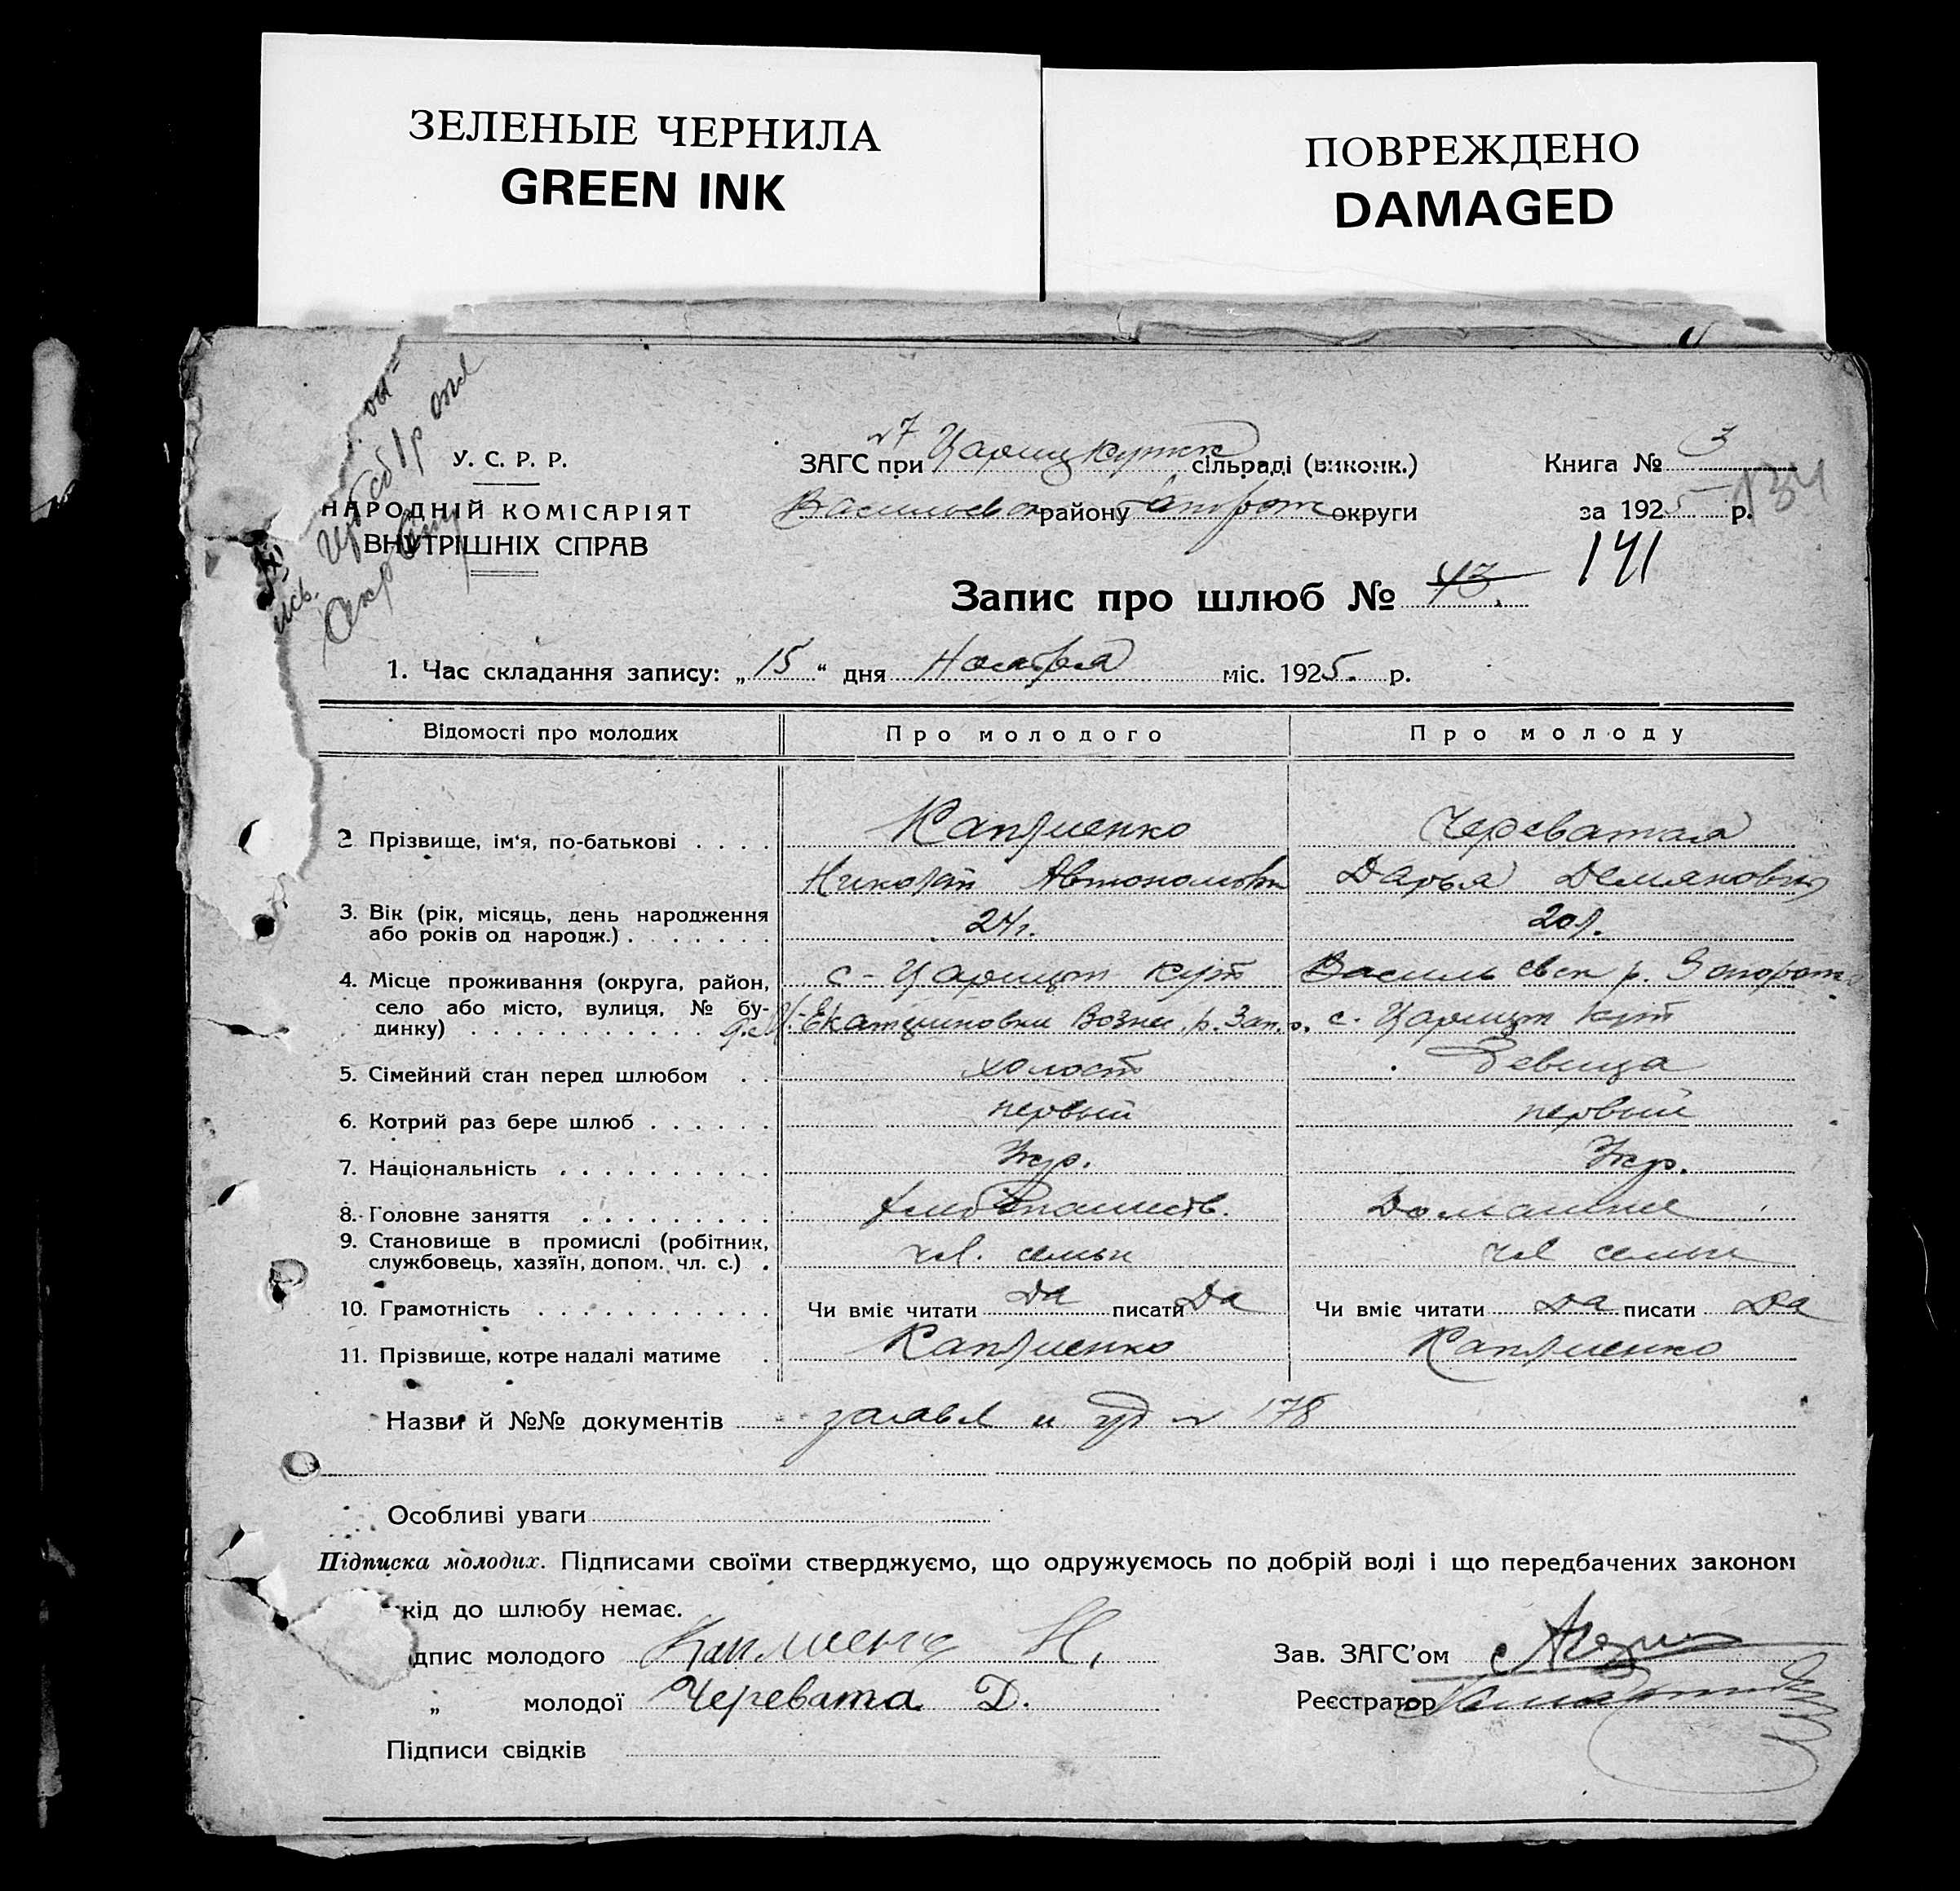 ЗЕЛЕНЫЕ ЧЕРНИЛА
GREEN INK
ПОВРЕЖДЕНО
DAMAGED
У. С. Р. Р.
НАРОДНІЙ КОМІСАРІЯТ
ВНУТРІШНІХ СПРАВ
ЗАГС при сільраді (виконк.)
району округи
Книга № 3
за 1925 р.
134
141
Запис про шлюб № 43.
1. Час складання запису: „15“ дня Ноября міс. 1925. р.
Відомості про молодих Про молодого Про молоду
2 Прізвище, ім'я, по-батькові Череватая
Николай Дарья Демяновна
3. Вік (рік, місяць, день народження 24г. 20л.
або років од народж.)
4. Місце проживання (округа, район, с-Царицын Кут Васильевск р. Запорож
село або місто, вулиця, № бу-
динку) Екатериновки Вознес. р. Зап. о. с. Царицын Кут
5. Сімейний стан перед шлюбом холост Девица
6. Котрий раз бере шлюб первый первый
7. Національність Укр. Укр.
8. Головне заняття Хлебопашеств. Домашнее
9. Становище в промислі (робітник, чл. семьи чл семьи
службовець, хазяїн, допом. чл. с.)
10. Грамотність Чи вміє читати Да писати Да Чи вміє читати Да писати Да
11. Прізвище, котре надалі матиме
Назви й №№ документів заявл и уд № 178
Особливі уваги
Підписка молодих. Підписами своїми стверджуємо, що одружуємось по добрій волі і що передбачених законом
кід до шлюбу немає.
дпис молодого Н, Зав. ЗАГС'ом
„ молодої Черевата Д. Реєстратор
Підписи свідків